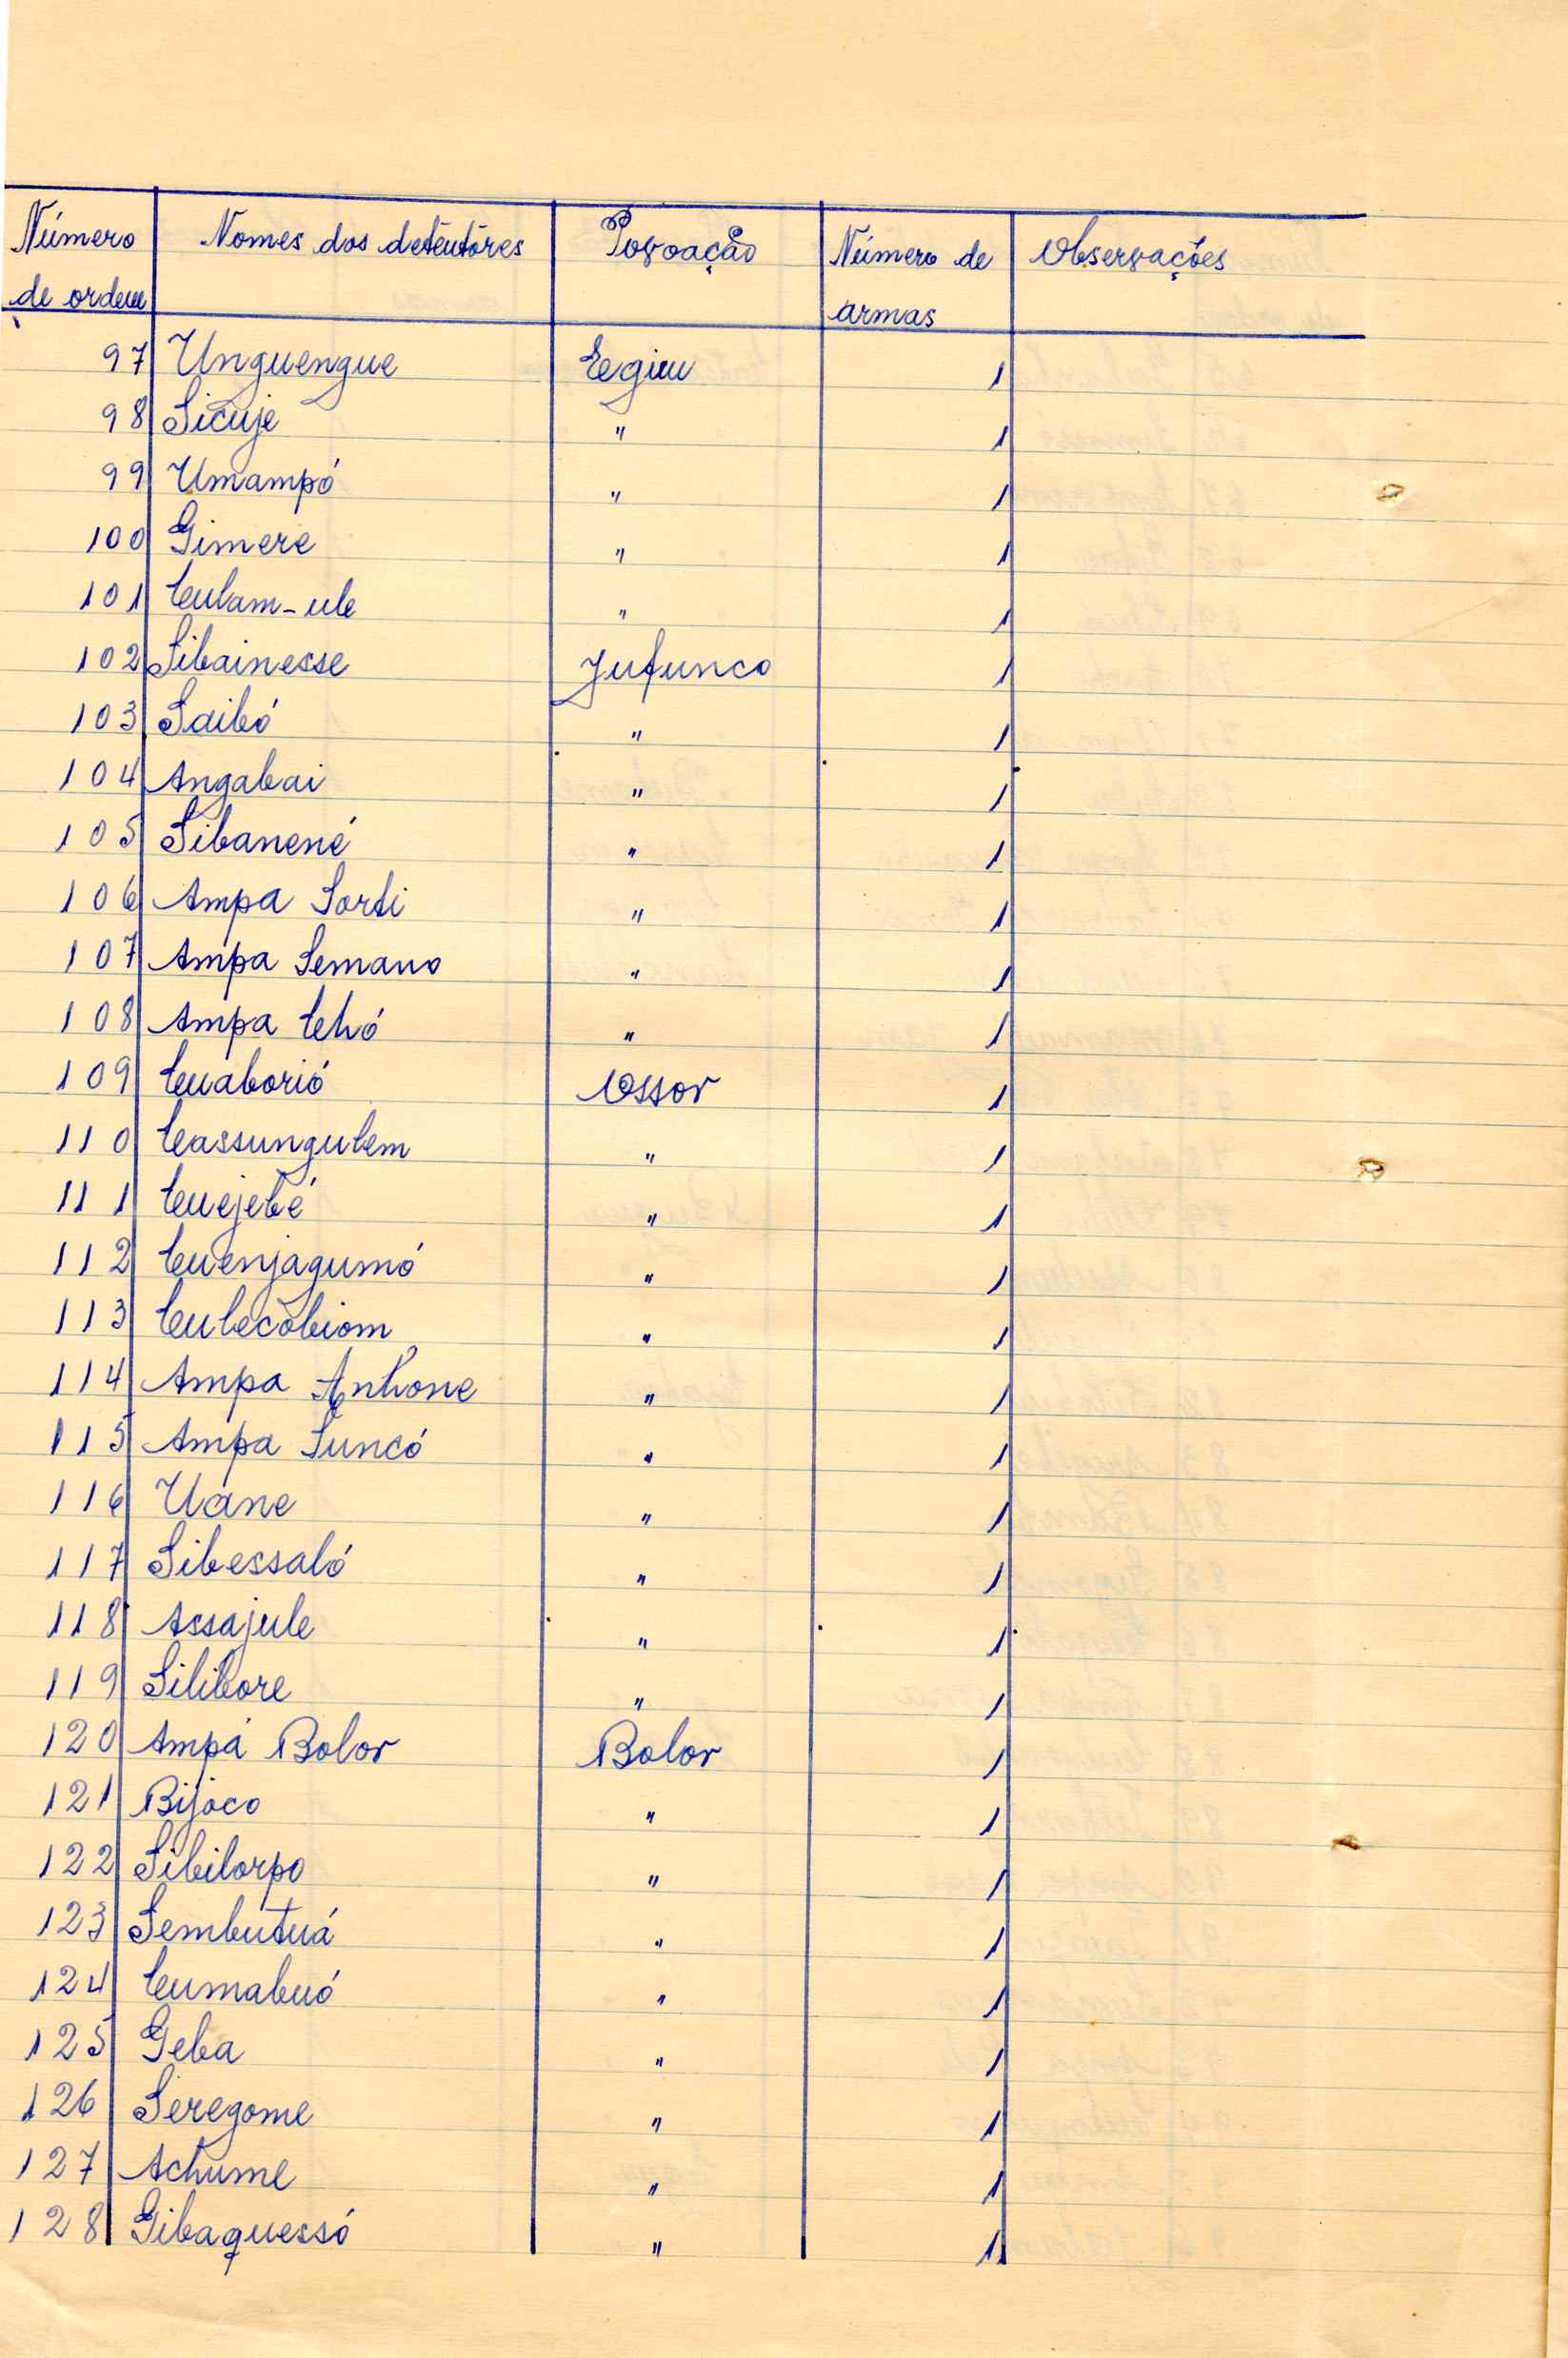 Número de ordem Nomes dos detentôres Povoação Número de armas Observações
97 Unguengue Egiw 1
98 Sicuje " 1
99 Umampó " 1
100 Gimere " 1
101 Culam-ule " 1
102 Sibainesse Jufunco 1
103 Saibó " 1
104 Angabai " 1
105 Sibanené " 1
106 Ampa Sorti " 1
107 Ampa Semano " 1
108 Ampa Cehó " 1
109 Cuaborió Ossor 1
110 Cassungulem " 1
111 Cuejebé " 1
112 Cuenjagumó " 1
113 Culecobiom " 1
114 Ampa Antone " 1
115 Ampa Suncó " 1
116 Uane " 1
117 Sibessaló " 1
118 Assajule " 1
119 Silibore " 1
120 Ampá Bolor Bolor 1
121 Bijoco " 1
122 Sibilorpo " 1
123 Sembutuá " 1
124 Cumabuó " 1
125 Geba " 1
126 Seregome " 1
127 Achume " 1
128 Gibaquessó " 1